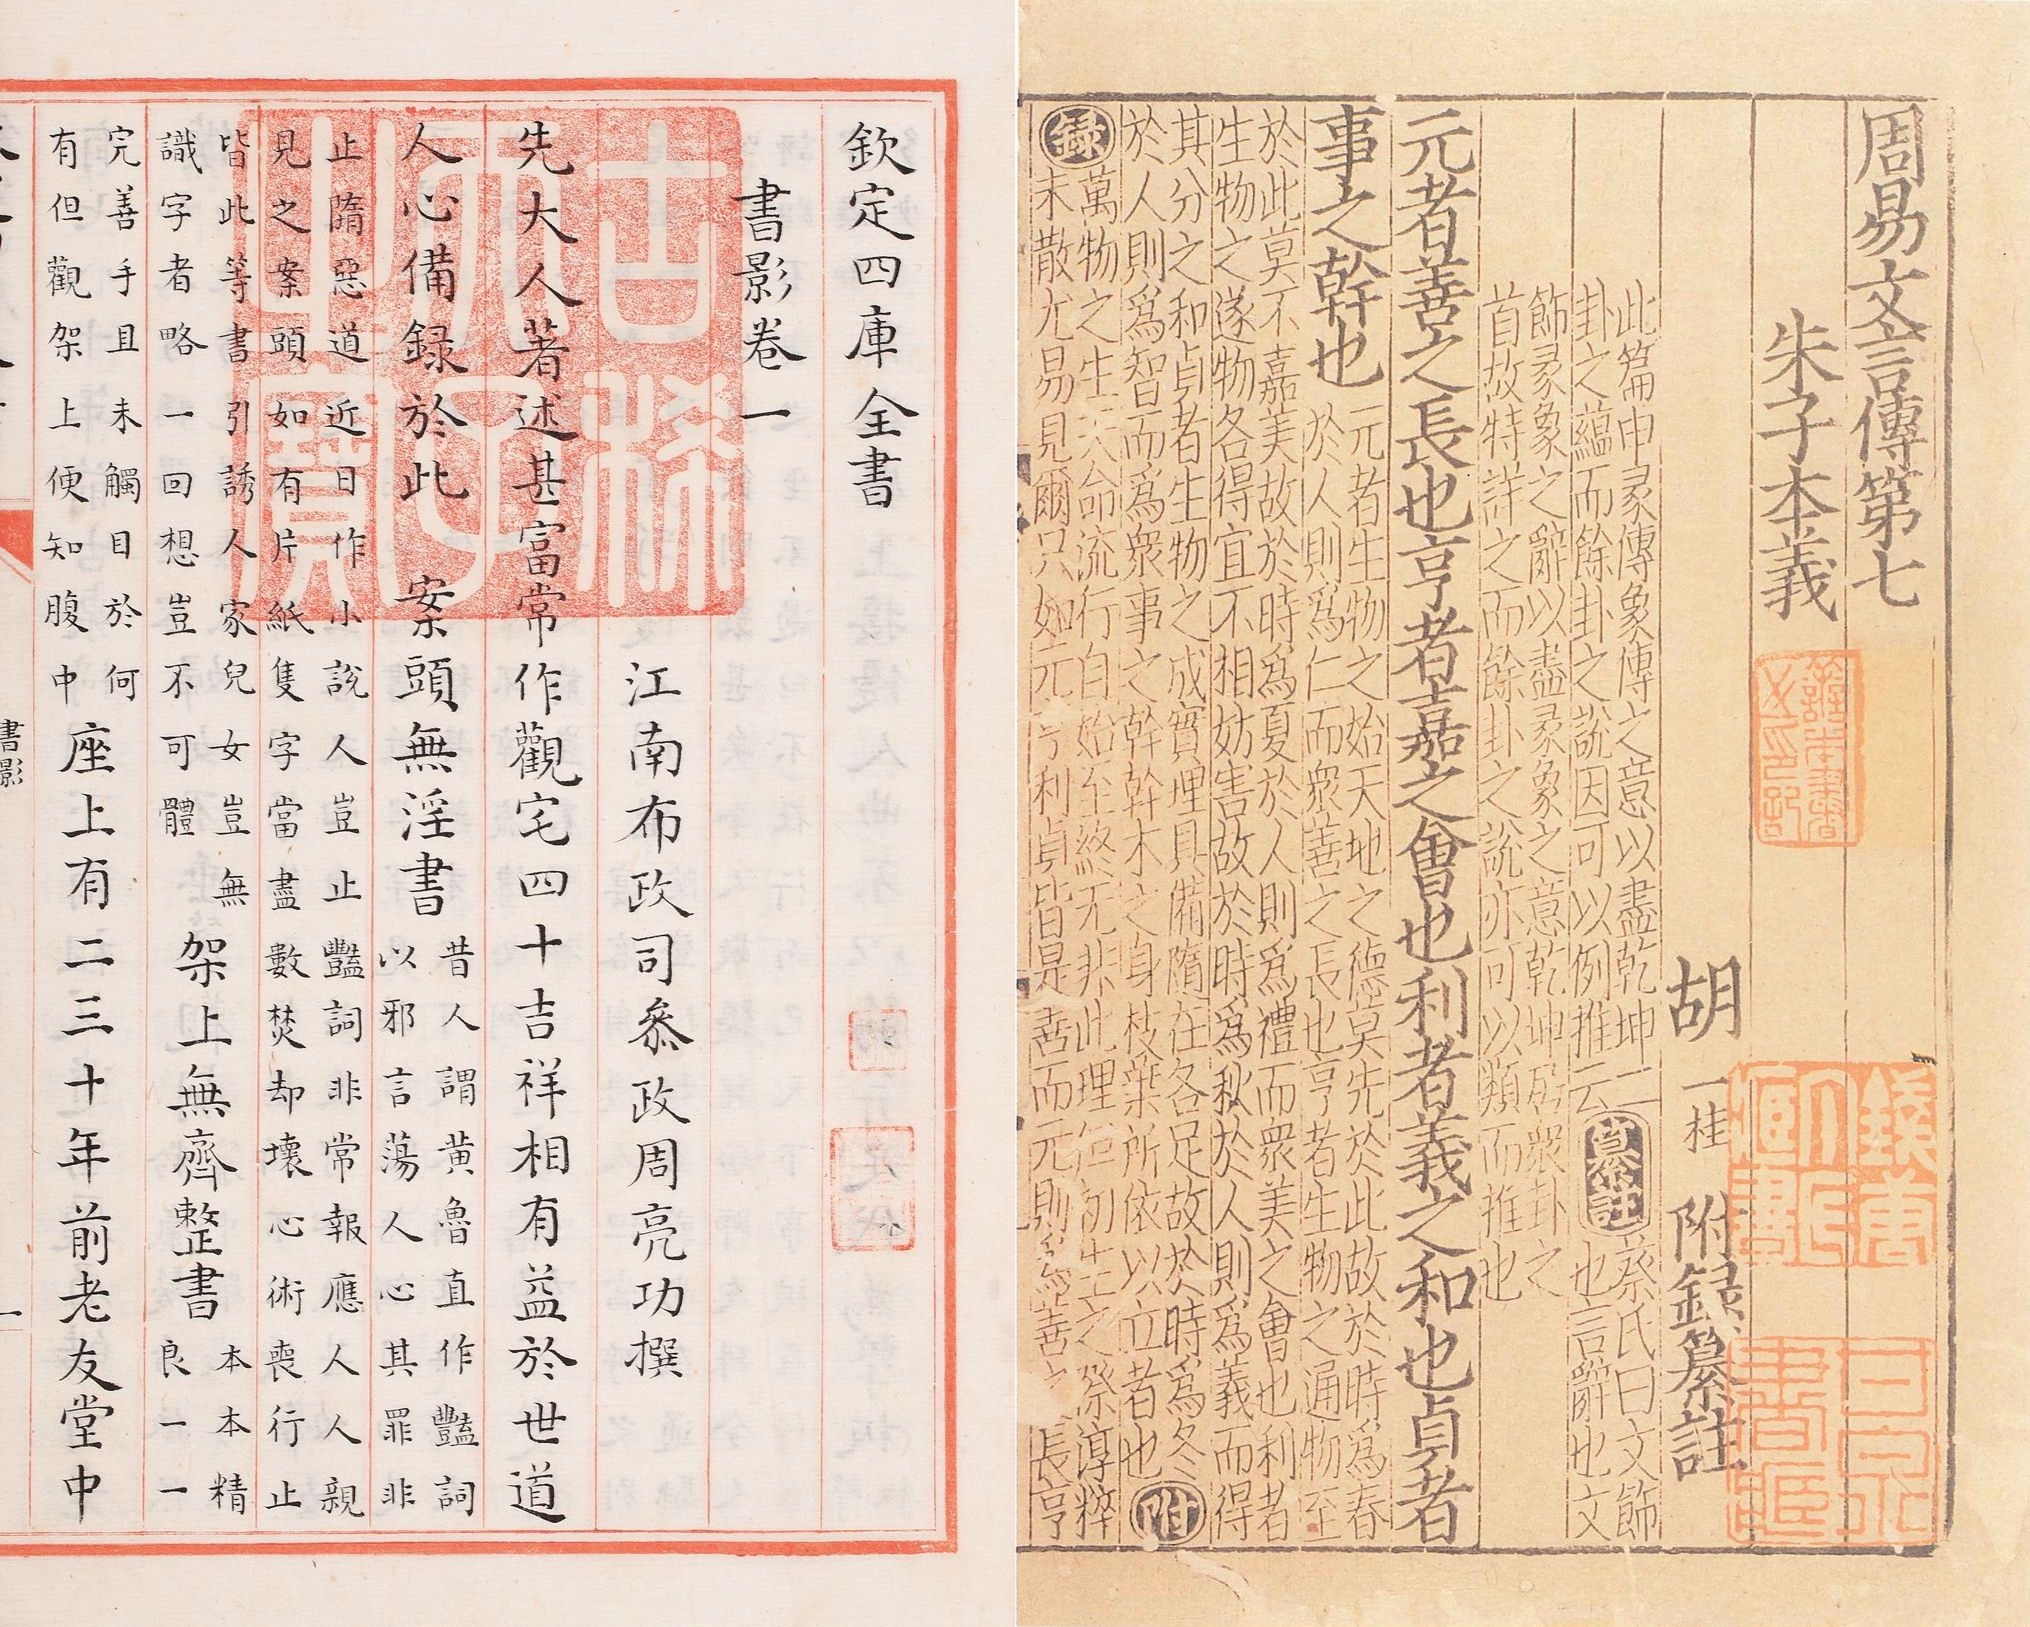 周易文言傳第七
朱子本義
胡一桂 附録纂註
此篇申彖傳象傳之意以盡乾坤二
卦之蘊而餘卦之說因可以例推云
纂註
蔡氏曰文飾
也言辭也文
飾彖象之辭以盡彖象之意乾坤居衆卦之
首故特詳之而餘卦之說亦可以類而推也
元者善之長也亨者嘉之會也利者義之和也貞者
事之幹也
元者生物之始天地之德莫先於此故於時爲春
於人則爲仁而衆善之長也亨者生物之通物至
於此莫不嘉美故於時爲夏於人則爲禮而衆美之會也利者
生物之遂物各得宜不相妨害故於時爲秋於人則爲義而得
其分之和貞者生物之成實理具備隨在各足故於時爲冬
於人則爲智而爲衆事之幹幹木之身枝葉所依以立者也
附
録
萬物之生天命流行自始至終无非此理但初生之際淳粹
未散尤易見爾只如元亨利貞皆是善而元則爲善之長亨
欽定四庫全書
書影卷一
江南布政司叅政周亮功撰
先大人著述甚富常作觀宅四十吉祥相有益於世道
人心備録於此 案頭無淫書
昔人謂黄魯直作豔詞
以邪言蕩人心其罪非
止隋惡道近日作小說人豈止豔詞非常報應人人親
見之案頭如有片紙隻字當盡數焚却壞心術喪行止
皆此等書引誘人家兒女豈無
識字者略一回想豈不可體
架上無齊整書
本本精
良一一
完善手且未觸目於何
有但觀架上便知腹中
座上有二三十年前老友堂中
書影
一
古稀天子之寶